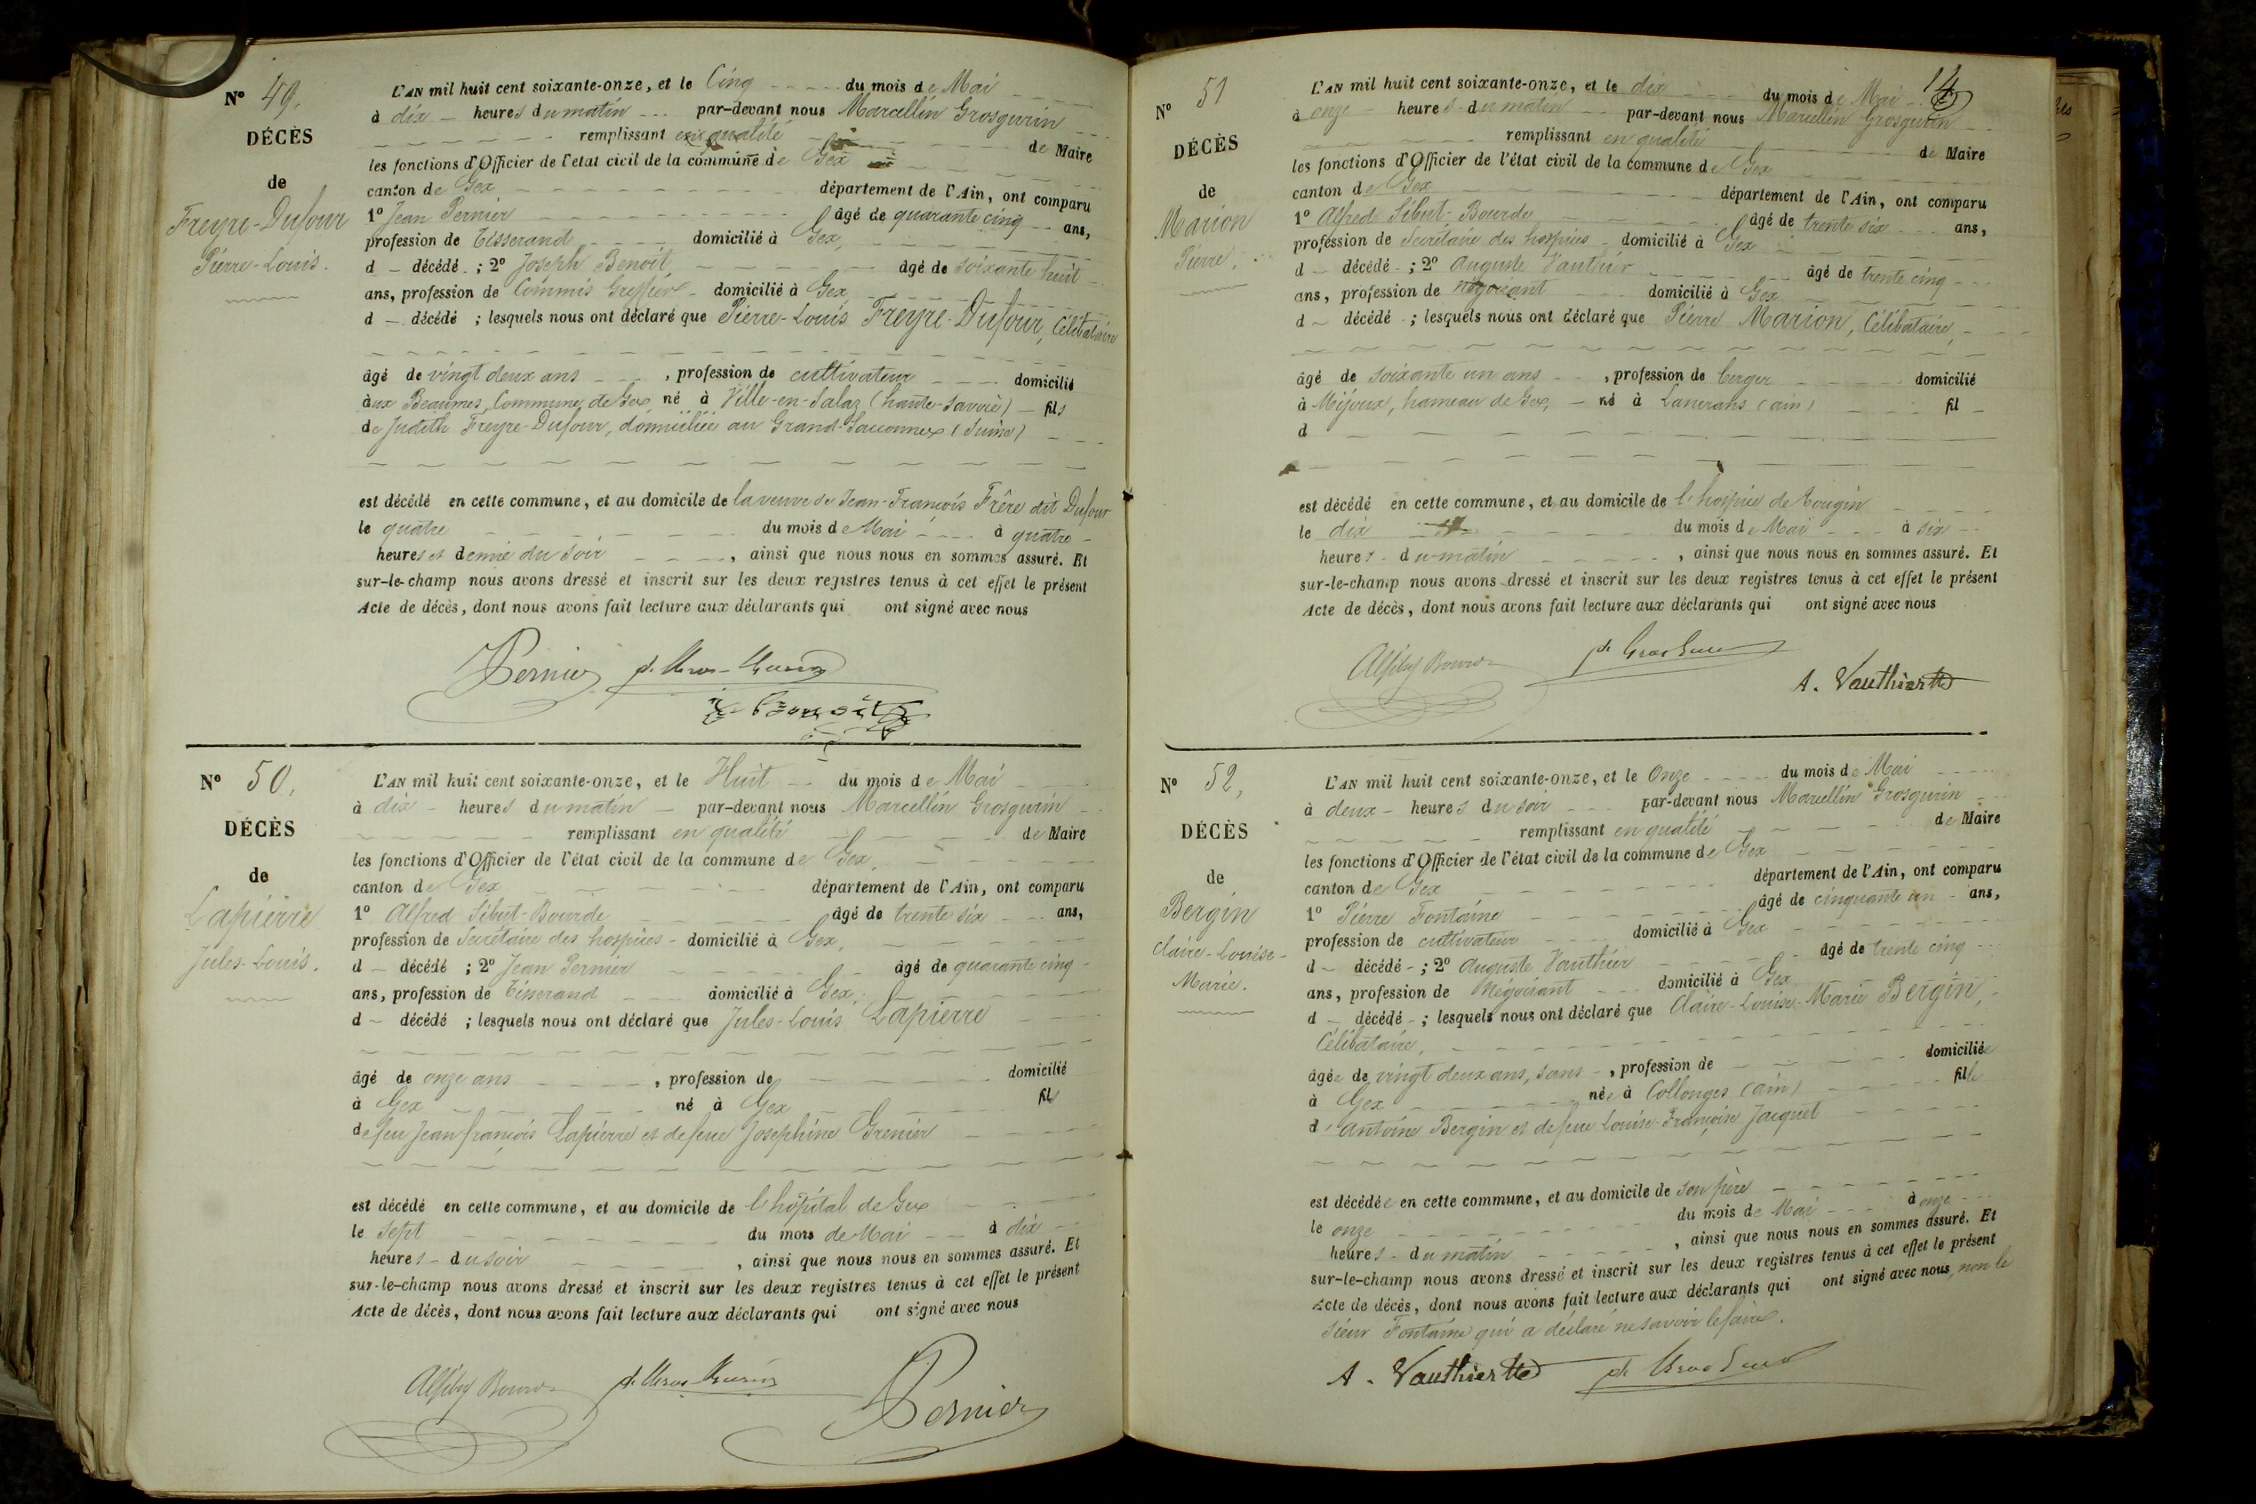 Nº 49.
DÉCÈS
de
Freyre-Dufour
Pierre-Louis.
L'AN mil huit cent soixante-onze, et le Cinq du mois de Mai
à dix heures du matin par-devant nous Marcellin Grosgurin
remplissant en qualité de Maire
les fonctions d'Officier de l'état civil de la commune de Gex
canton de Gex département de l'Ain, ont comparu
1º Jean Pernier âgé de quarante cinq ans,
profession de Tisserand domicilié à Gex,
d décédé ; 2º Joseph Benoit, âgé de soixante huit
ans, profession de Commis Greffier domicilié à Gex
d décédé ; lesquels nous ont déclaré que Pierre-Louis Freyre-Dufour, Célibataire
âgé de vingt deux ans , profession de cultivateur domicilié
aux Beaumes, Commune de Gex né à Ville-en-Salaz (haute-Savoie) fils
de Judith Freyre-Dufour, domiciliée au Grand-Saconnex (Suisse)
est décédé en cette commune, et au domicile de la veuve de Jean-François Frêre dit Dufour
le quatre du mois de Mai à quatre
heures et demie du soir , ainsi que nous nous en sommes assuré. Et
sur-le-champ nous avons dressé et inscrit sur les deux registres tenus à cet effet le présent
Acte de décès, dont nous avons fait lecture aux déclarants qui ont signé avec nous
Pernier
Benoit
Nº 50.
DÉCÈS
de
Lapierre
Jules-Louis.
L'AN mil huit cent soixante-onze, et le Huit du mois de Mai
à dix heures du matin par-devant nous Marcellin Grosgurin
remplissant en qualité de Maire
les fonctions d'Officier de l'état civil de la commune de Gex,
canton de Gex département de l'Ain, ont comparu
1º Alfred Sibut-Bourde âgé de trente six ans,
profession de Secrétaire des hospices domicilié à Gex,
d décédé ; 2º Jean Pernier âgé de quarante cinq
ans, profession de Tisserand domicilié à Gex,
d décédé ; lesquels nous ont déclaré que Jules-Louis Lapierre
âgé de onze ans , profession de domicilié
à Gex né à Gex fils
de feu Jean françois Lapierre et de feue Josephine Grenier
est décédé en cette commune, et au domicile de l'hôpital de Gex
le Sept du mois de Mai à dix
heures du soir , ainsi que nous nous en sommes assuré. Et
sur-le-champ nous avons dressé et inscrit sur les deux registres tenus à cet effet le présent
Acte de décès, dont nous avons fait lecture aux déclarants qui ont signé avec nous
Pernier
14
Nº 51
DÉCÈS
de
Marion
Pierre.
L'AN mil huit cent soixante-onze, et le dix du mois de Mai
à onze heures du matin par-devant nous Marcellin Grosgurin
remplissant en qualité de Maire
les fonctions d'Officier de l'état civil de la commune de Gex
canton de Gex département de l'Ain, ont comparu
1º Alfred Sibut-Bourde âgé de trente six ans,
profession de Secrétaire des hospices domicilié à Gex
d décédé ; 2º Auguste Vauthier âgé de trente cinq
ans, profession de Négociant domicilié à Gex
d décédé ; lesquels nous ont déclaré que Pierre Marion, Célibataire,
âgé de soixante un ans , profession de berger domicilié
à Mijoux, hameau de Gex, né à Lancrans (ain) fil
d
est décédé en cette commune, et au domicile de l'hospice de Tougin
le dix du mois de Mai à six
heures du matin , ainsi que nous nous en sommes assuré. Et
sur-le-champ nous avons dressé et inscrit sur les deux registres tenus à cet effet le présent
Acte de décès, dont nous avons fait lecture aux déclarants qui ont signé avec nous
A. Vauthier
Nº 52,
DÉCÈS
de
Bergin
Claire-Louise-
Marie.
L'AN mil huit cent soixante-onze, et le Onze du mois de Mai
à deux heures du soir par-devant nous Marcellin Grosgurin
remplissant en qualité de Maire
les fonctions d'Officier de l'état civil de la commune de Gex
canton de Gex département de l'Ain, ont comparu
1º Pierre Fontaine âgé de cinquante un ans,
profession de cultivateur domicilié à Gex
d décédé ; 2º Auguste Vauthier âgé de trente cinq
ans, profession de Négociant domicilié à Gex
d décédé ; lesquels nous ont déclaré que Claire-Louise-Marie Bergin,
Célibataire,
âgée de vingt deux ans, sans , profession de domiciliée
à Gex née à Collonges (ain) fille
d'antoine Bergin et de feue Louise-Françoise Jacquet
est décédée en cette commune, et au domicile de son père
le onze du mois de Mai à onze
heures du matin , ainsi que nous nous en sommes assuré. Et
sur-le-champ nous avons dressé et inscrit sur les deux registres tenus à cet effet le présent
Acte de décès, dont nous avons fait lecture aux déclarants qui ont signé avec nous, non le
sieur Fontaine qui a déclaré ne savoir le faire.
A. Vauthier